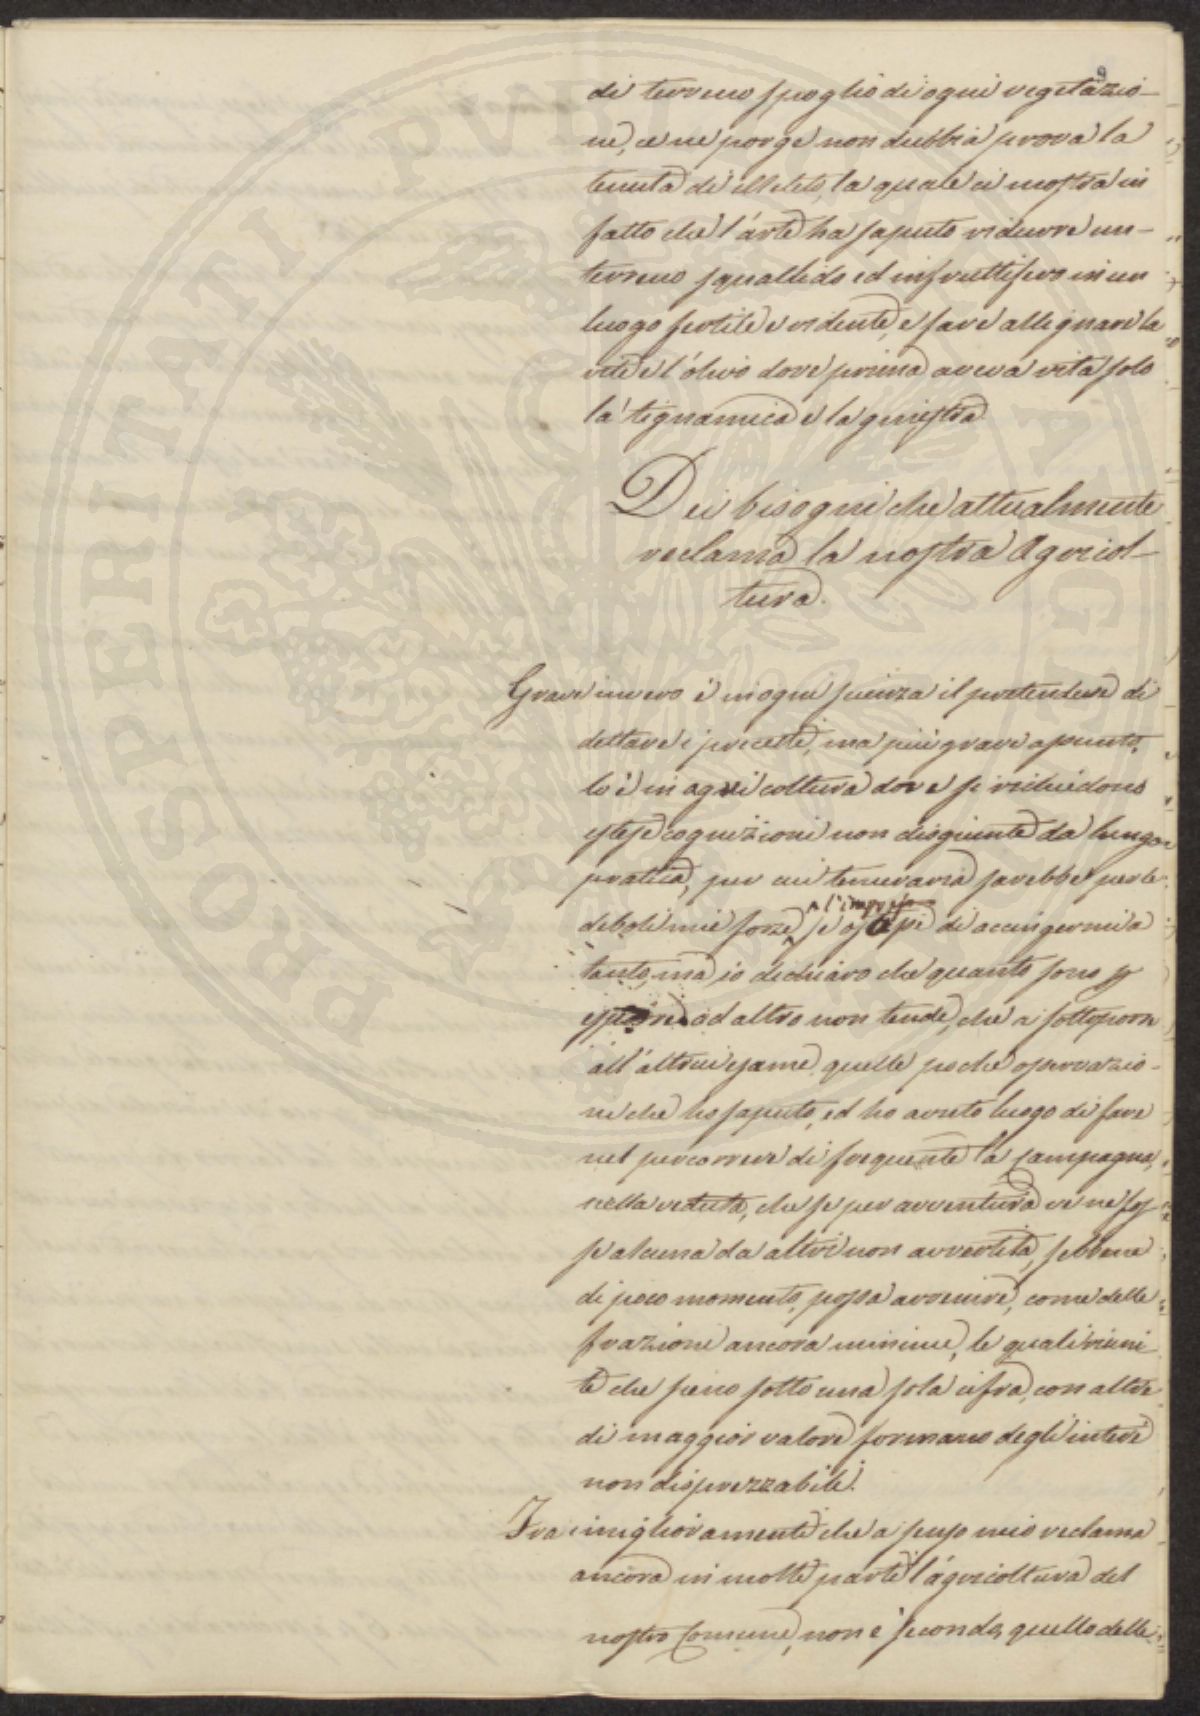 9
di terreno spoglio di ogni vegetazio-
ne, ce ne porge non dubbia prova la
tenuta di                la quale ci mostra in
fatto che l'arte ha saputo ridurre un-
terreno squallido ed infruttifero in un
luogo fertile e ridente, e fare allignare la
vite e l'olivo dove prima aveva vita solo
la tignamica e la ginestra.
Dei bisogni che attualmente
reclama la nostra Agricol-
tura.
Grave invero è in ogni scienza il pretendere di
dettare i precetti, ma più grave apunto,
lo è in agricoltura dove si richiedono
estese cognizioni non disgiunte da lunga
pratica, per cui temeraria sarebbe per le
l'impresa
deboli mie forze, se osassi di accingermi a
tanto, ma io dichiaro che quanto sono p
esporre ad altro non tende, che a sottoporre
all'altrui esame quelle poche osservazio-
ni che ho saputo, ed ho avuto luogo di fare
nel percorrere di frequente la Campagna,
nella veduta, che se per avventura ve ne fos-
se alcuna da altri non avvertita, sebbene
di poco momento, possa avvenire, come delle
frazioni ancora minime, le quali riuni
te che sieno sotto una sola cifra, con altre
di maggior valore formano degli interi
non disprezzabili.
Fra i miglioramenti che a senso mio reclama
ancora in molte parti l'agricoltura del
nostro Comune, non è secondo, quello delle
PROSPERITATI PVBLICAE AVGENDAE